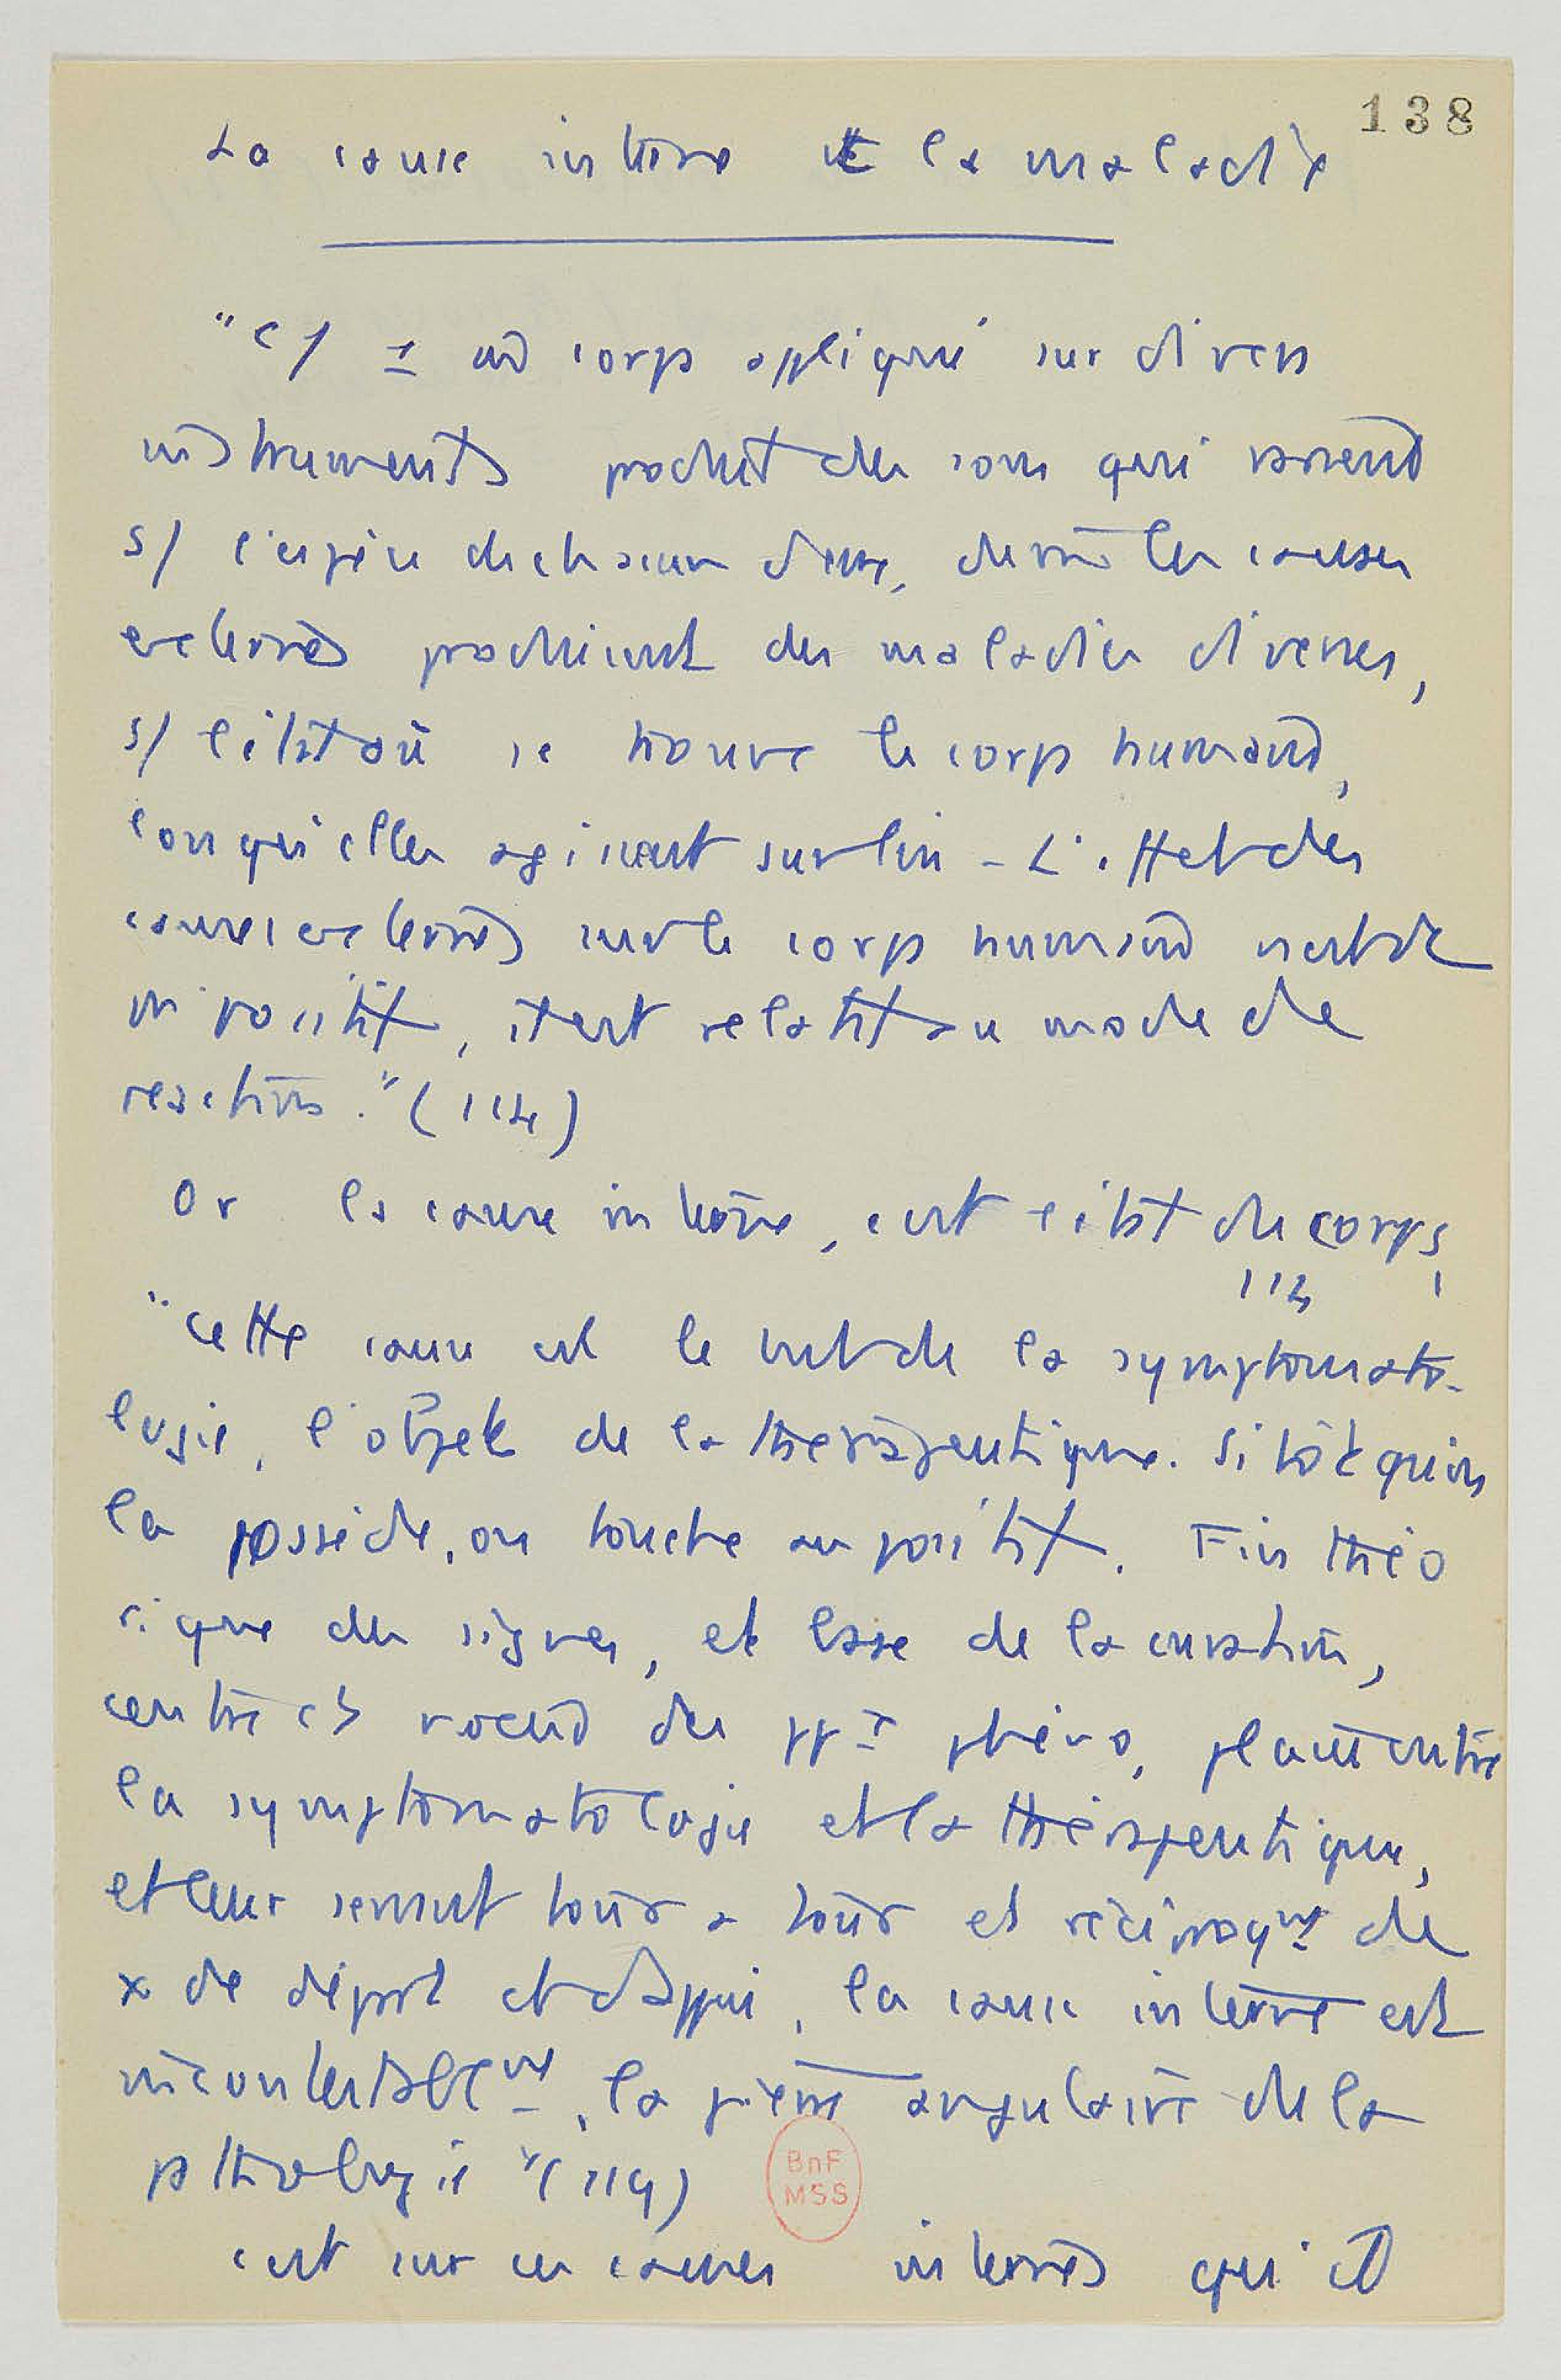 138
La cause interne de la maladie
"C/ 1 corps appliqué sur divers
instruments produit des sons qui varient
s/ l'espèce de chacun d'eux, de m̂ les causes
externes produisent des maladies diverses,
s/ l'état où se trouve le corps humain,
lorsqu'elles agissent sur lui - L'effet des
causes externes sur le corps humain n'est
ni positif, il est relatif au mode de
réaction." (114)
Or la cause interne, c'est l'état du corps,
"cette cause est le but de la symptomato-
logie, l'objet de la thérapeutique. Sitôt qu'on
la possède, on touche au positif. Fin théo
rique des signes, et base de la curation,
centre et nœud des ppx phéno, placée entre
la symptomatologie et la thérapeutique,
et leur servant tour à tour et réciproqt de
x de dépôt et d'appui, la cause interne est
incontestablemt, la pierre angulaire de la
pathologie" (119)
C'est sur ces causes internes qu'il
BnF
MSS